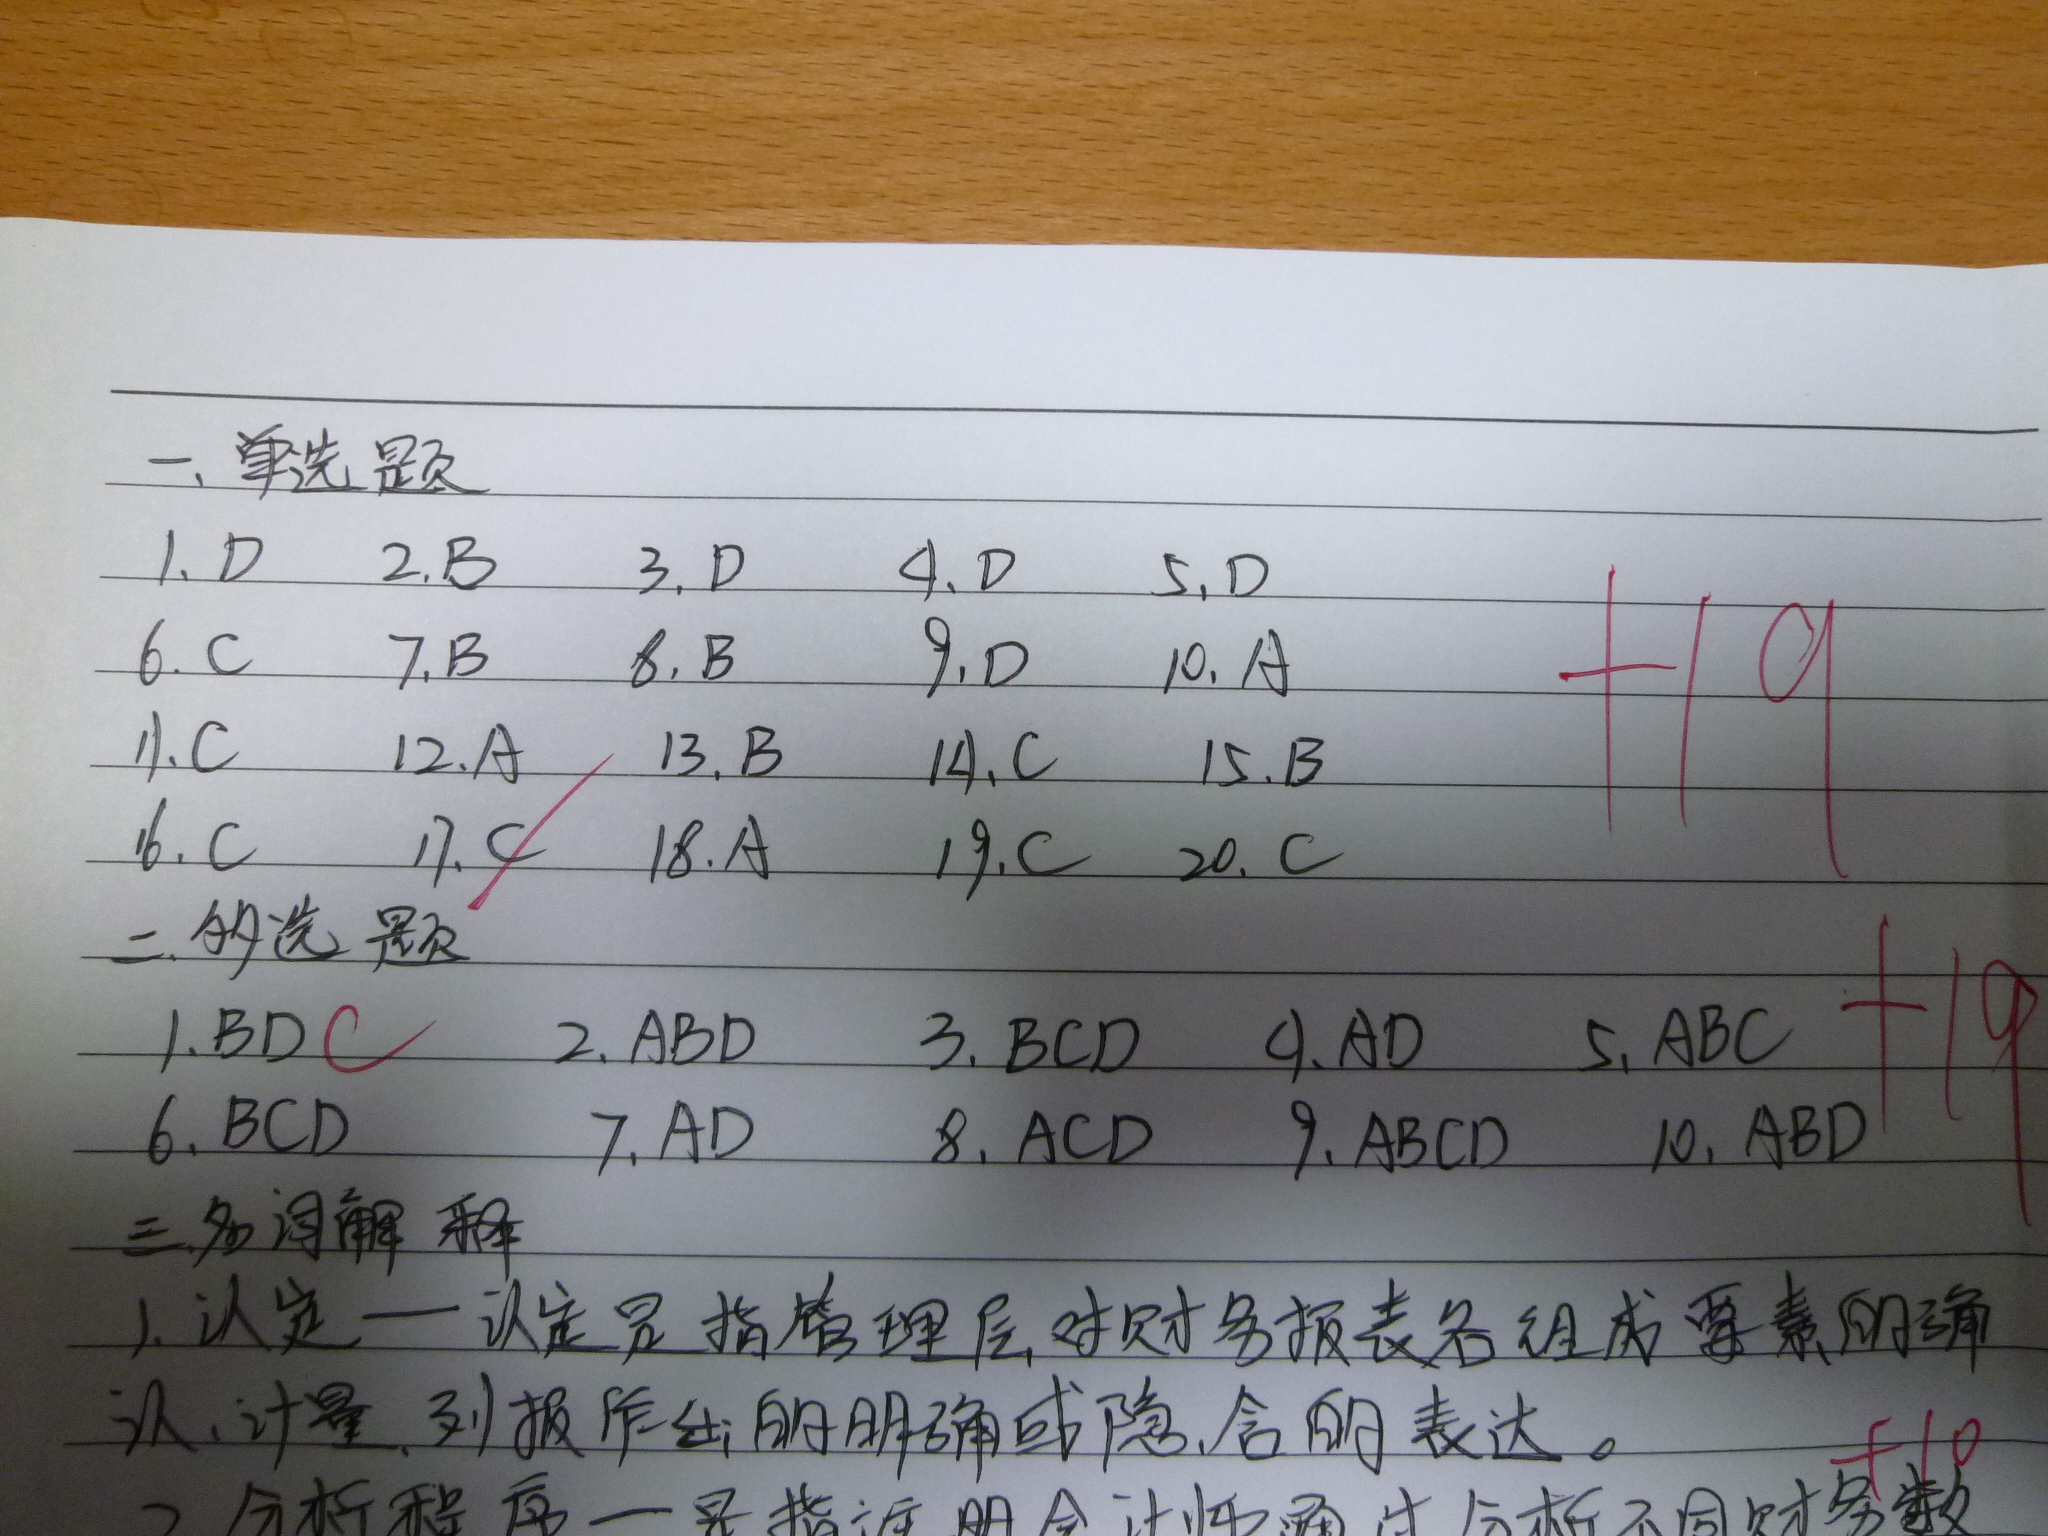 一、单选题
1. D 2. B 3. D 4. D 5. D
6. C 7. B 8. B 9. D 10. A
11. C 12. A 13. B 14. C 15. B
16. C 17. C 18. A 19. C 20. C
+19
二、多选题
1. BD C 2. ABD 3. BCD 4. AD 5. ABC
6. BCD 7. AD 8. ACD 9. ABCD 10. ABD
+19
三、名词解释
1. 认定——认定是指管理层对财务报表各组成要素的确
认、计量、列报作出的明确或隐含的表达。
+10
2. 分析程序—是指注册会计师通过分析不同财务数